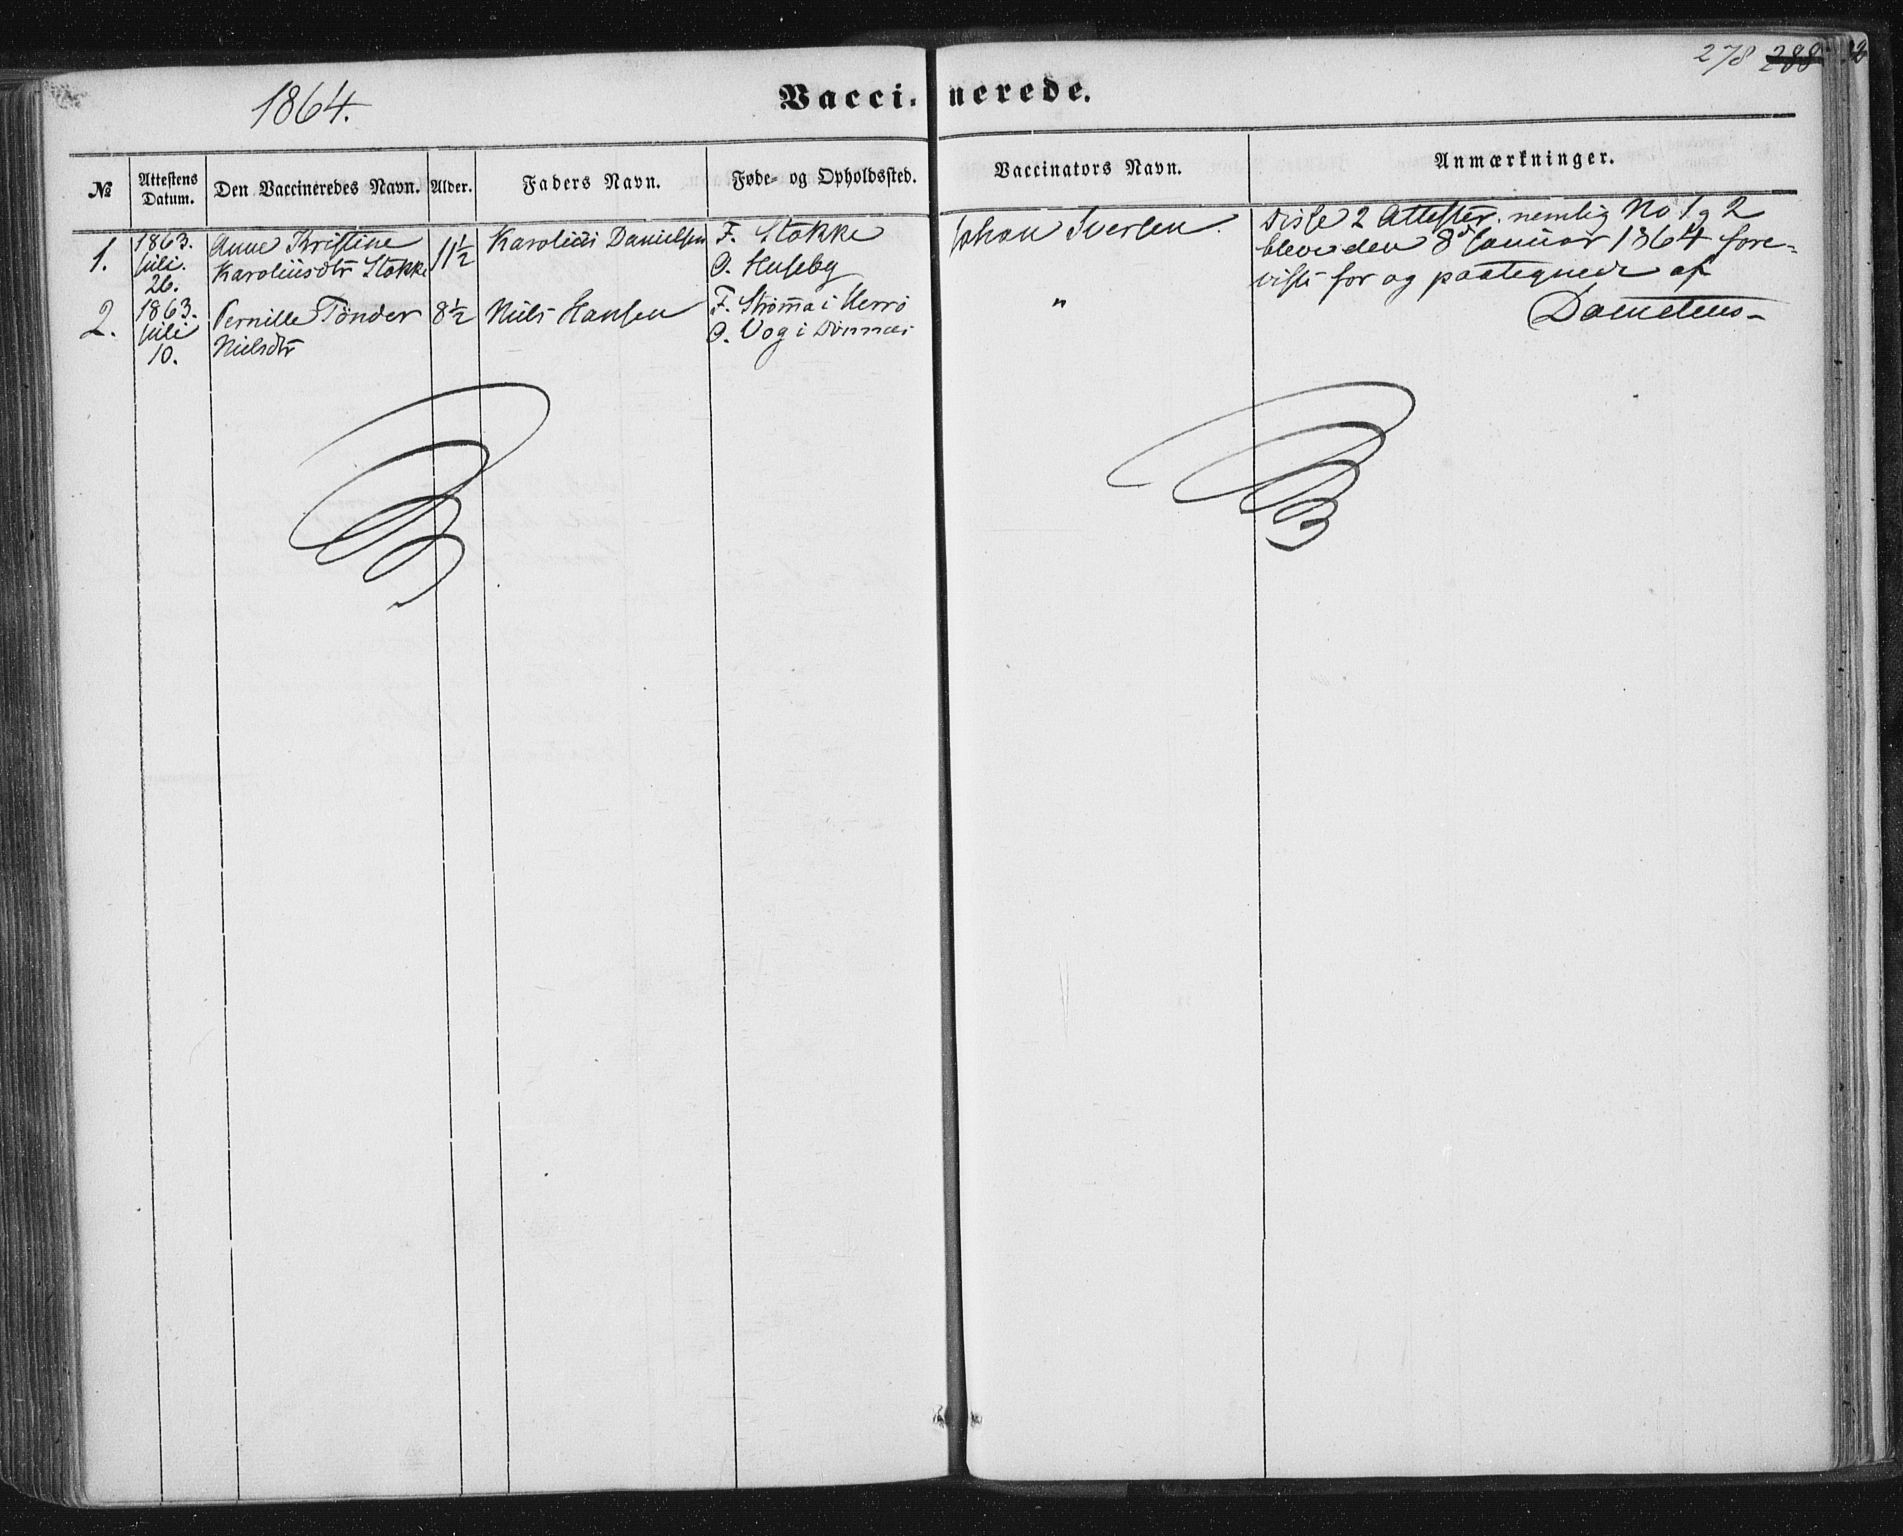 278 288
1864.
Vaccinerede.
№
Attestens Datum.
Den Vaccineredes Navn.
Alder.
Faders Navn.
Føde- og Opholdssted.
Vaccinators Navn.
Anmærkninger.
1.
1863.
Juli.
26.
Anne Kristine
Karoliusdtr Stokke
11½
Karolius Danielsen
F. Stokke
O. Huseby
Johan Iversen.
Disse 2 Attester, nemlig No 1 og 2
bleve den 8d Januar 1864 fore-
viste for og paategnede af
2.
1863.
Juli
10.
Pernille Tønder
Nielsdtr
8½
Niels Hansen
F. Strømma i Herrø
O. Vog i Dønnæs
"